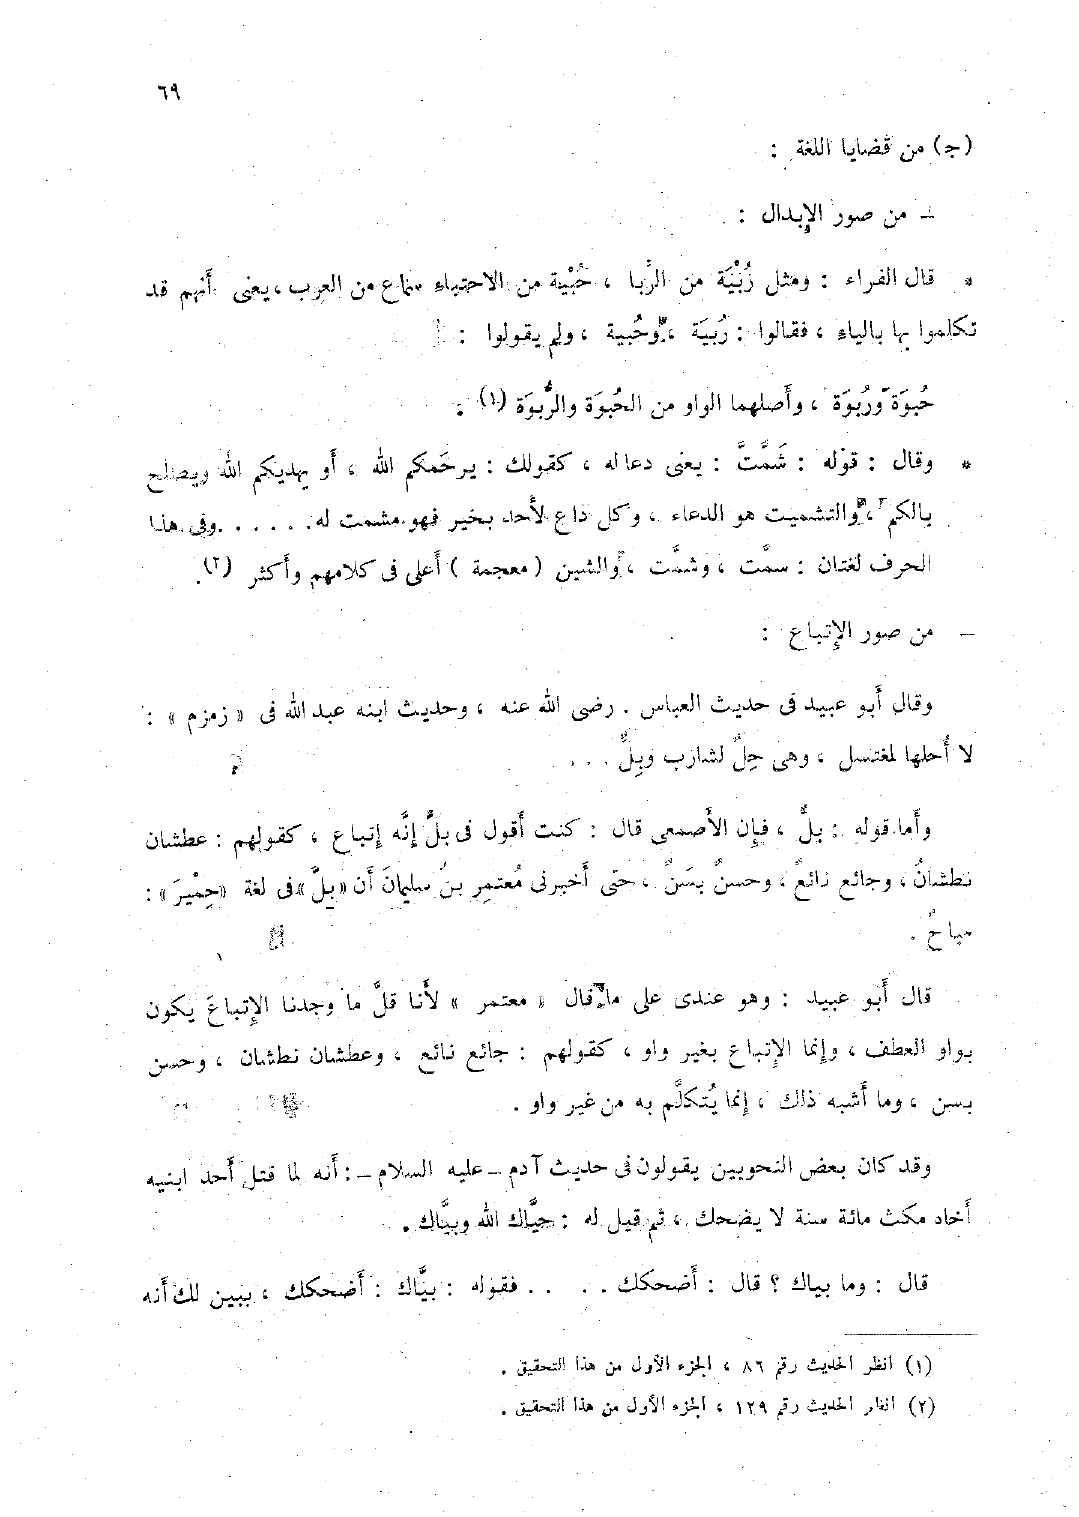 ٦٩
(جـ) من قضايا اللغة :
ـ من صور الإبدال :
* قال الفراء : ومثل رُبْيَة من الرِّبا ، حُبْية من الاحتباء سماع من العرب ، يعنى أنهم قد
تكلموا بها بالياء ، فقالوا : رُبيَة ، وحُبية ، ولم يقولوا :
حُبوَة ورُبوَة ، وأصلهما الواو من الحُبوَة والرُّبوَة (١) .
* وقال : قوله : شَمَّتَّ : يعنى دعا له ، كقولك : يرحَمكم الله ، أو يهديكم الله ويصلح
بالكم ، والتشميت هو الدعاء ، وكل داع لأحد بخير فهو مشمت له . . . . . . وفى هذا
الحرف لغتان : سمَّت ، وشمَّت ، والشين ( معجمة ) أعلى فى كلامهم وأكثر (٢) .
ـ من صور الإتباع :
وقال أبو عبيد فى حديث العباس . رضى الله عنه ، وحديث ابنه عبد الله فى « زمزم » :
لا أُحلها لمغتسل ، وهى حِلٌّ لشارب وبِلٌّ . . .
وأما قوله : بلٌّ ، فإن الأصمعى قال : كنت أقول فى بلٍّ إنَّه إتباع ، كقولهم : عطشان
نطشانُ ، وجائع نائعٌ ، وحسنٌ بسَنٌ ، حتى أخبرنى مُعتمِر بنُ سليمانَ أن « بلَّ » فى لغة « حِمْيرَ » :
مباحٌ .
قال أبو عبيد : وهو عندى على ما قال « معتمر » لأنا قلَّ ما وجدنا الإتباعَ يكون
بواو العطف ، وإنما الإتباع بغير واو ، كقولهم : جائع نائع ، وعطشان نطشان ، وحسن
بسن ، وما أشبه ذلك ، إنما يُتكلَّم به من غير واو .
وقد كان بعض النحويين يقولون فى حديث آدم ـ عليه السلام ـ : أنه لما قتل أحد ابنيه
أخاه مكث مائة سنة لا يضحك ، ثم قيل له : حيَّاك الله وبيَّاك .
قال : وما بياك ؟ قال : أضحكك . . . . فقوله : بيَّاك : أضحكك ، يبين لك أنه
(١) انظر الحديث رقم ٨٦ ، الجزء الأول من هذا التحقيق .
(٢) انظر الحديث رقم ١٢٩ ، الجزء الأول من هذا التحقيق .